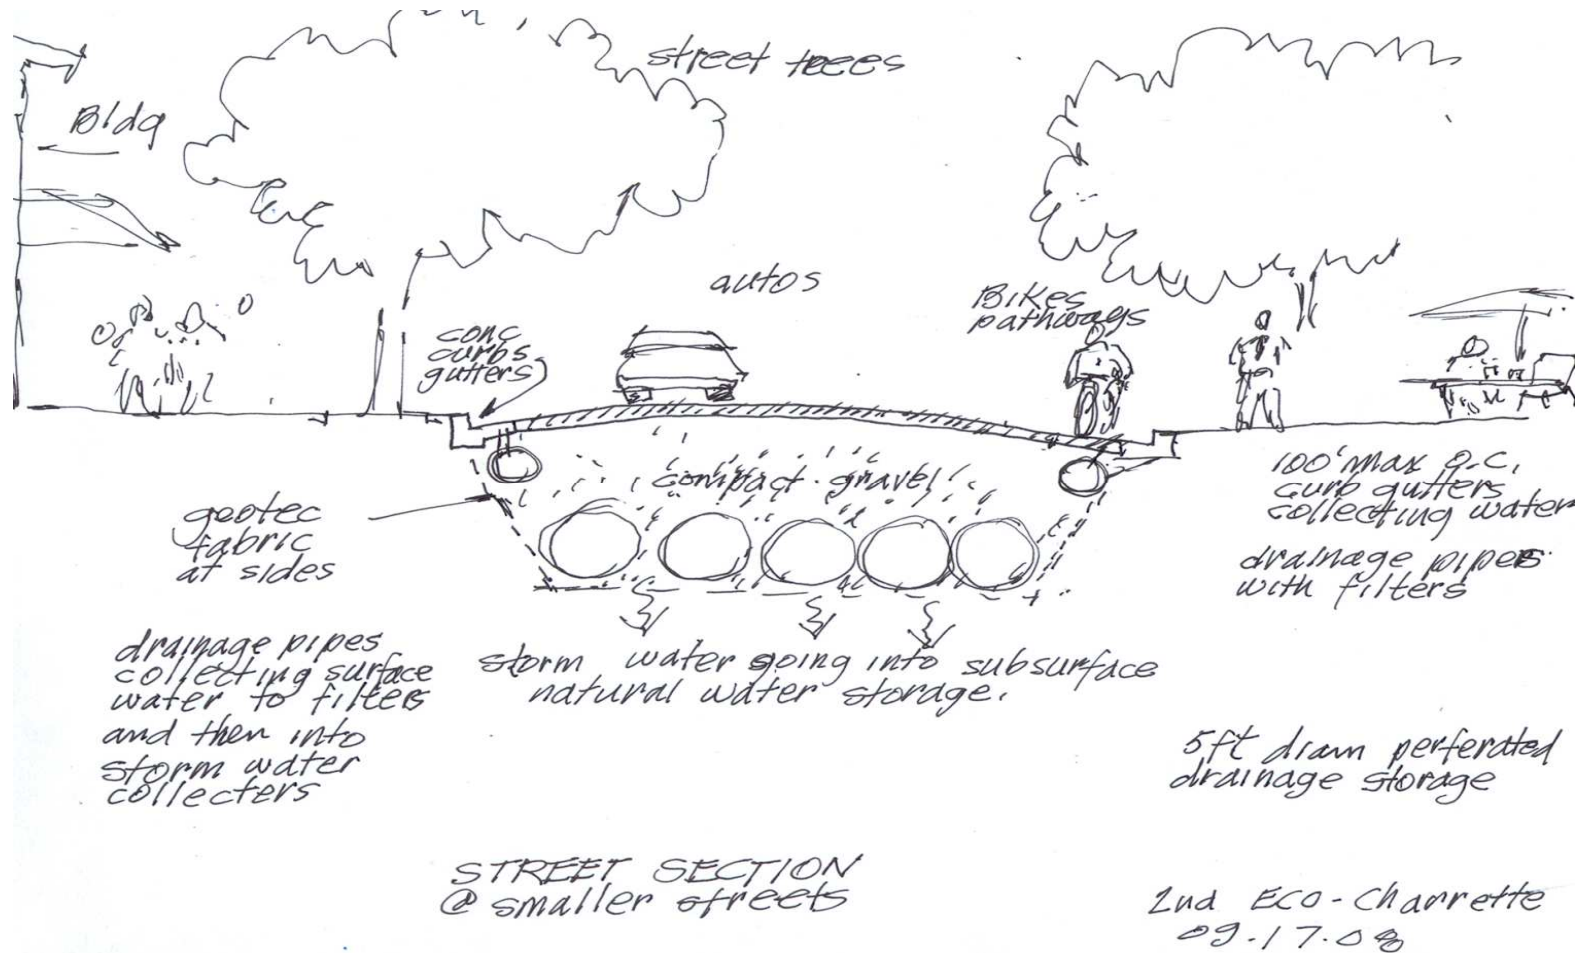 street trees
Bldg
autos
Bikes
pathways
conc
curbs
gutters
compact gravel
geotec
fabric
at sides
100' max o.c.
curb gutters
collecting water
drainage pipes
with filters
drainage pipes
collecting surface
water to filters
and then into
storm water
collecters
storm water going into subsurface
natural water storage.
5ft diam perferated
drainage storage
STREET SECTION
@ smaller streets
2nd ECO-Charrette
09.17.08